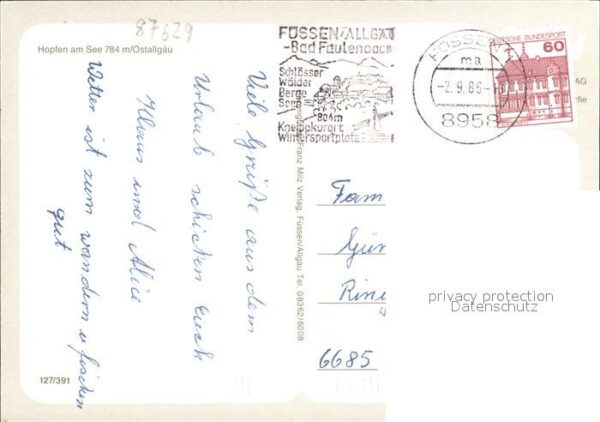 87629
Hopfen am See 784 m/Ostallgäu
FÜSSEN/ALLGÄU
-Bad Faulenbach
Schlösser
Wälder
Berge
Seen
804m
Kneippkurort
Wintersportplatz
FÜSSEN 1
ma
-2.9.86-
8958
DEUTSCHE BUNDESPOST
60
AG
Viele Grüße aus dem
Urlaub schicken Euch
Klaus und Alice
Wetter ist zum wandern u. fischen
gut
Franz Milz Verlag, Füssen/Allgäu Tel. 08362/6008
Fam
Gün
Rin
6685
privacy protection
Datenschutz
127/391